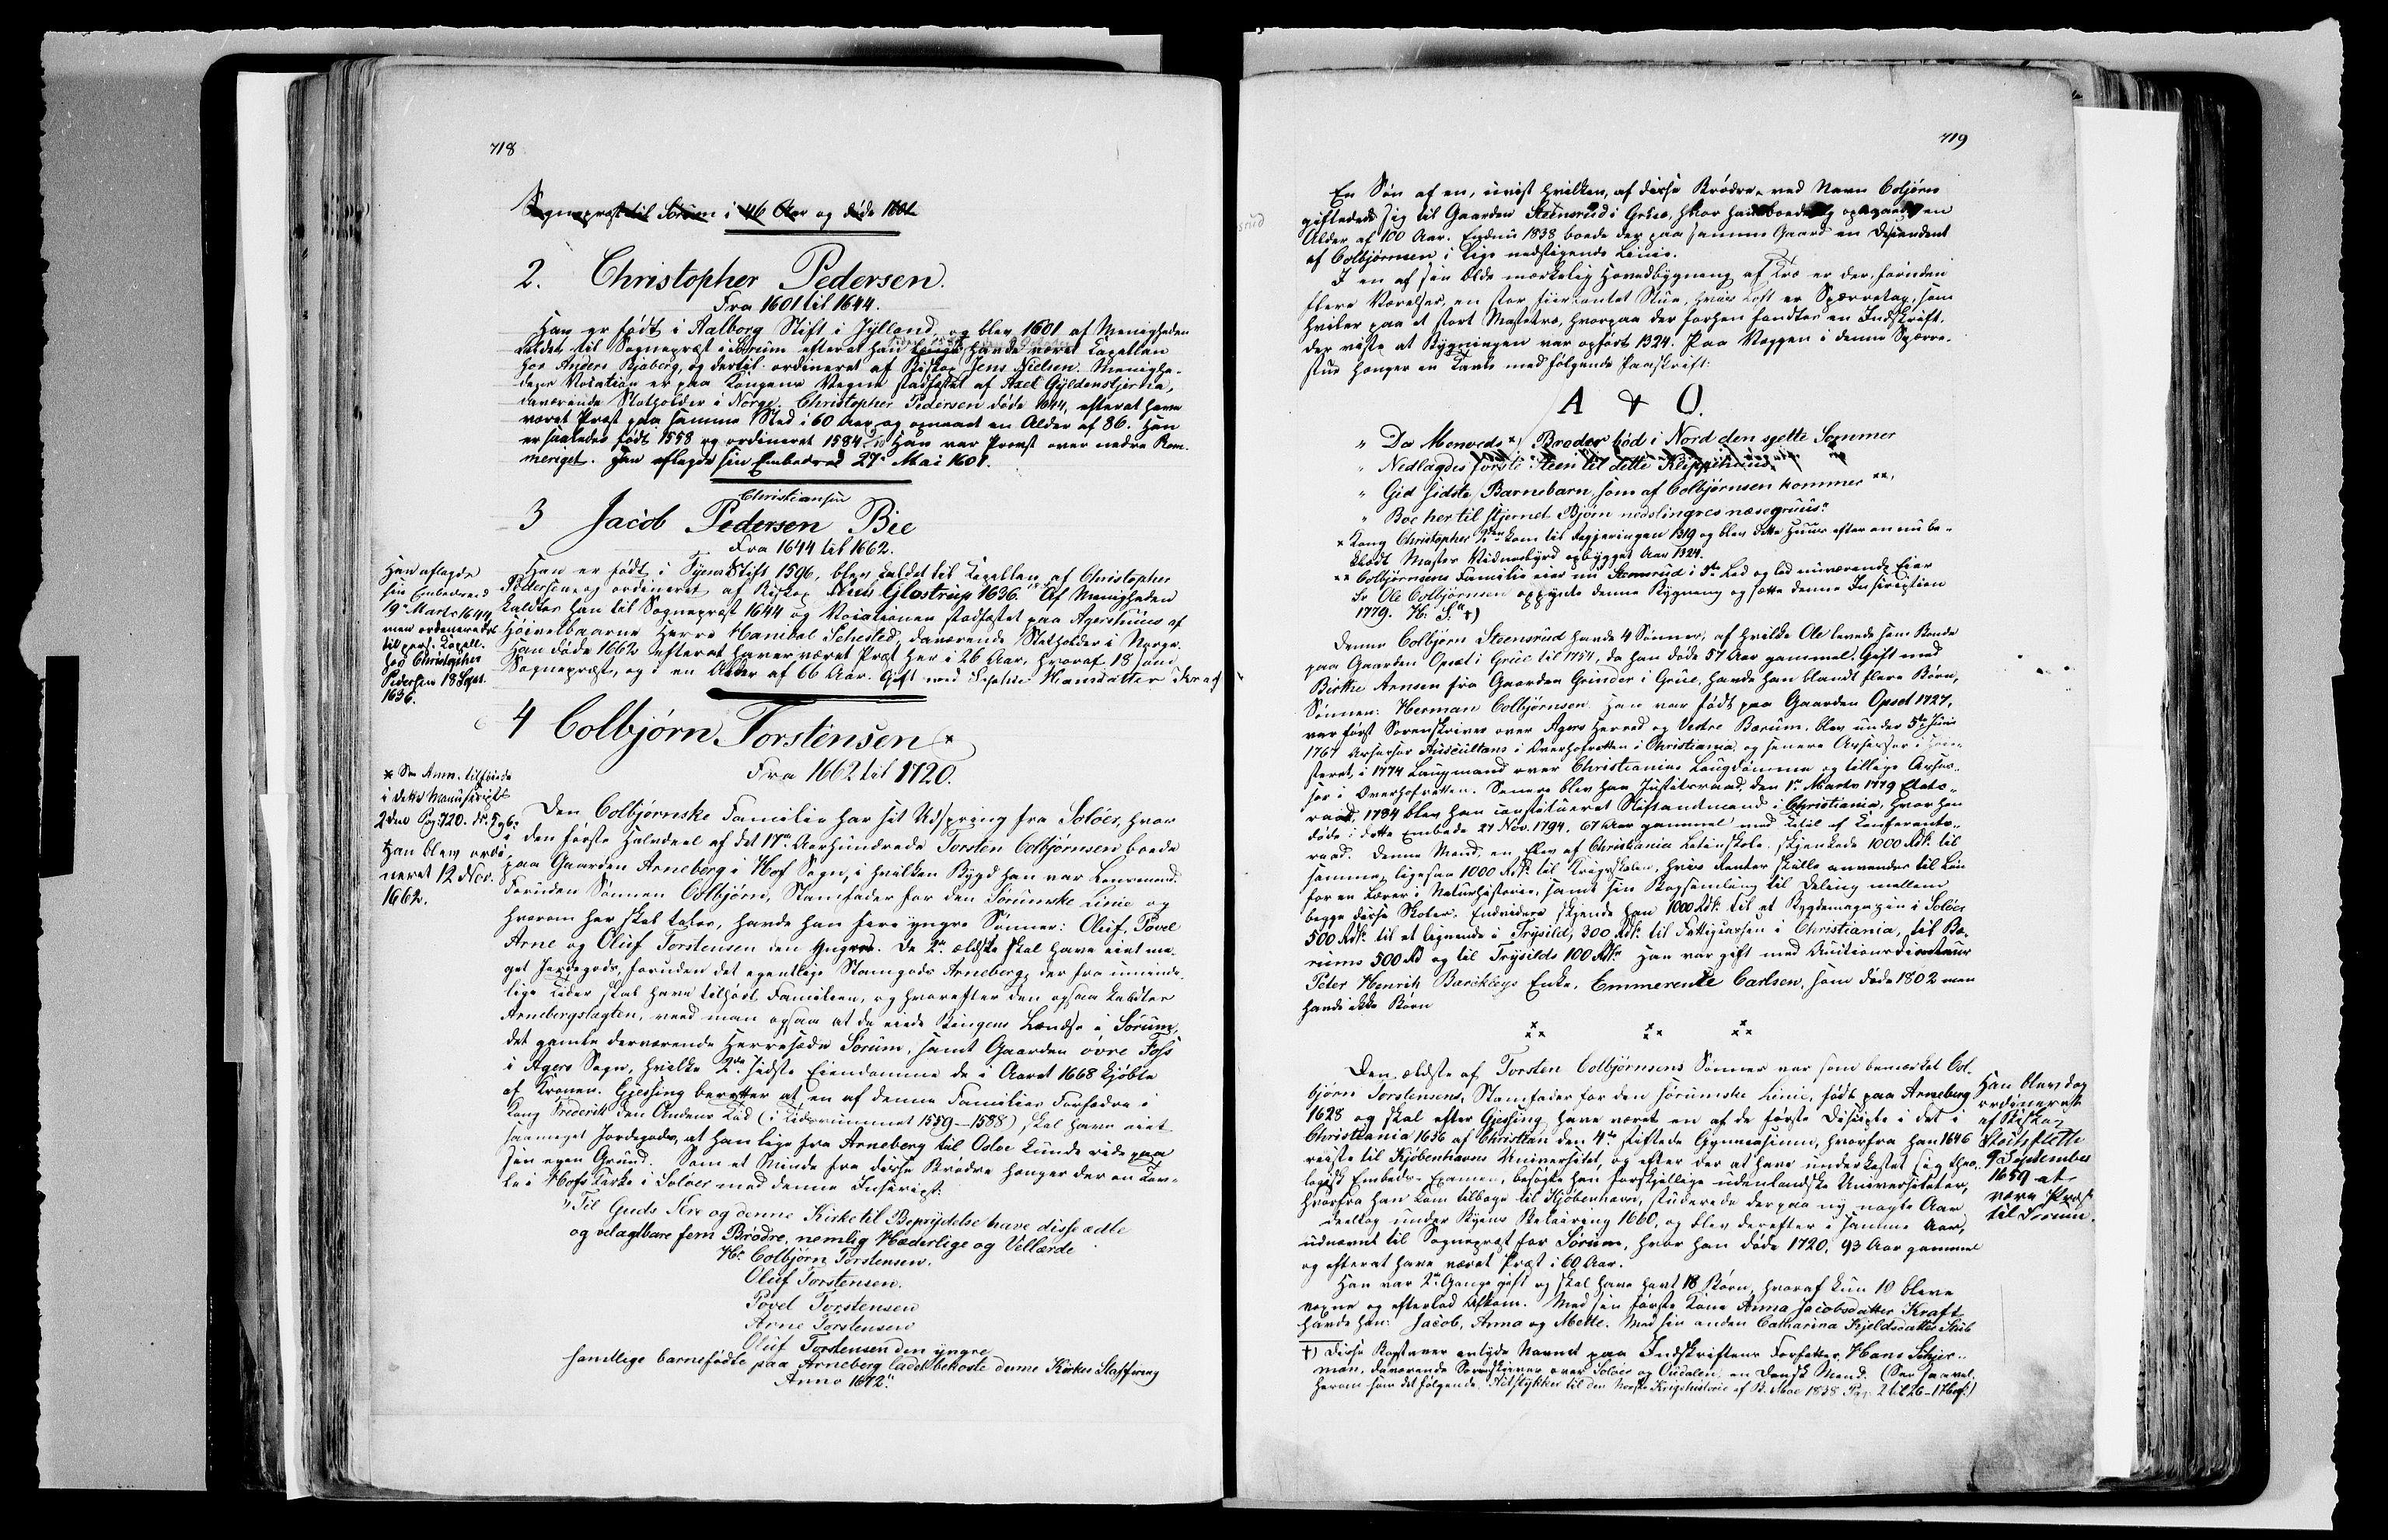 718
Sognepræst til Sørum i 46 Aar og døde 1601.
2. Christopher Pedersen.
Fra 1601 til 1644.
Han er født i Aalborg Stift i Jylland, og blev 1601 af Menigheden
kaldet til Sognepræst i Sørum efterat han havde været Capellan
hos Anders Bjaberg, og dertil ordineret af Biskop Jens Nielsen. Menighe-
dens Vocation er paa Kongens Vegne stadfæstet af Axel Gyldenstjerna,
daværende Statholder i Norge. Christopher Pedersen døde 1644, efterat have
været Præst paa samme Sted i 60 Aar og opnaaet en Alder af 86. Han
er saaledes født 1558 og ordineret 1584. Han var Provst over nedre Rom-
meriget. Han aflagde sin Embedsed 27de Mai 1601.
Christiansen
3 Jacob Pedersen Bie
Fra 1644 til 1662.
Han aflagde
sin Embedsed
19de Marts 1644,
men ordineredes
til pers. Capell.
hos Christopher
Pedersen 18 Sept.
1636.
Han er født i Fyens Stift 1596, blev kaldet til Capellan af Christopher
Pedersen, og ordineret af Biskop Niels Glostrup 1636. Af Menigheden
kaldtes han til Sognepræst 1644 og Vocationen stadfæstet paa Agershuus af
Høivelbaarne Herre Hanibal Sehested, daværende Statholder i Norge.
Han døde 1662 efterat have været Præst her i 26 Aar, hvoraf 18 som
Sognepræst, og i en Alder af 66 Aar. Gift med Sophie Hansdatter
4 Colbjørn Torstensen *
Fra 1662 til 1720.
* See Anm. tilføiede
i dette Manuscript
2den Pag: 720. No. 5 og 6.
Han blev ordi-
neret 12 Nov.
1662.
Den Colbjørnske Familie har sit Udspring fra Soløer, hvor
i den første Halvdeel af det 17de Aarhundrede Torsten Colbjørnsen boede
paa Gaarden Arneberg i Hof Sogn, i hvilken Bygd han var Lensmand.
Foruden Sønnen Colbjørn, Stamfader for den Sørumske Linie og
hvorom her skal tales, havde han fire yngre Sønner: Oluf, Povel
Arne og Oluf Torstensen den Yngre. De 2de ældste skal have eiet me-
get Jordegods, foruden det egentlige Stamgods Arneberg, der fra uminde-
lige Tider skal have tilhørt Familien, og hvorefter den ogsaa kaldtes
Arnebergslægten, veed man ogsaa at de eiede Bingens Lændse i Sørum,
det gamle derværende Herresæde Sørum, samt Gaarden øvre Foss
i Agers Sogn, hvilke 2de sidste Eiendomme de i Aaret 1668 kjøbte
af Kronen. Gjessing beretter at en af denne Families Forfædre i
Kong Frederik den Andens Tid (i Tidsrummet 1559–1588), skal have eiet
saameget Jordegods, at han lige fra Arneberg til Osloe kunde ride paa
sin egen Grund. Som et Minde fra disse Brødre hænger der en Tav-
le i Hofs Kirke i Soløer med denne Inscript:
"Til Guds Ære og denne Kirke til Beprydelse have disse ædle
og velagtbare fem Brødre, nemlig Hæderlige og Vellærde
Hr. Colbjørn Torstensen.
Oluf Torstensen.
Povel Torstensen
Arne Torstensen
Oluf Torstensen den yngre
samtlige barnefødte paa Arneberg ladet bekoste denne Kirkes Staffering
Anno 1672."
719
En Søn af en, uvist hvilken, af disse Brødre, ved Navn Colbjørn
giftede sig til Gaarden Steensrud i Grue, hvor han boede og opnaaede en
Alder af 100 Aar. Endnu 1838 boede der paa samme Gaard en Descendent
af Colbjørnsen i lige nedstigende Linie.
I en af sin Ælde mærkelig Hovedbygning af Træ er der, foruden
flere Værelser, en stor fiirkantet Stue, hvis Loft er Sperretag, som
hviler paa et stort Mastetræ, hvorpaa der forhen fandtes en Indskrift,
der viste at Bygningen var opført 1324. Paa Væggen i denne Sperre-
stue hænger en Tavle med følgende Paaskrift:
A & O.
" Da Menveds * Broder bød i Nord den sjette Sommer
" Nedlagdes første Steen til dette Klippehuus,
" Gid sidste Barnebarn, som af Colbjørnsen kommer **,
" Boe her til stjernet Bjørn nedslingres næsegruus."
* Kong Christopher 2den kom til Regjeringen 1319 og blev dette Huus efter en nu be-
klædt Mastes Vidnesbyrd opbygget Aar 1324.
** Colbjørnsens Familie eier nu Stensrud i 5te Led og lod nuværende Eier
Sr. Ole Colbjørnsen oppynte denne Bygning og sætte denne Inscription
1779. H. S. †)
Denne Colbjørn Steensrud havde 4 Sønner, af hvilke Ole levede som Bonde
paa Gaarden Opset i Grue til 1754, da han døde 57 Aar gammel. Gift med
Birthe Arnsen fra Gaarden Grinder i Grue, havde han blandt flere Børn,
Sønnen: Herman Colbjørnsen. Han var født paa Gaarden Opset 1727,
var først Sorenskriver over Agers Herred og Vestre Bærum, blev under 5te Juni
1767 Assessor Auscultans i Overhofretten i Christiania, og senere Assessor i
i 1774 Laugmand over Christianias Laugdømme og tillige Asses-
sor i Overhofretten. Senere blev han Justitsraad, den 1ste Marts 1779 Etats-
raad. 1784 blev han constitueret Stiftamtmand i Christiania, hvor han
døde i dette Embede 27 Nov. 1794, 67 Aar gammel med Titel af Conferents-
raad. Denne Mand, en Elev af Christiania Latinskole, skjenkede 1000 Rdl. til
samme, ligesaa 1000 Rdl. til Krigsskolen, hvis Renter skulle anvendes til Løn
for en Lærer i Naturhistorie, samt sin Bogsamling til Deling mellem
begge disse Skoler. Endvidere skjenkede han 1000 Rdl. til et Bygdemagazin i Soløer
500 Rdl. til et lignende i Trysild, 300 Rdl. til Fattigcassen i Christiania, til Bæ-
rums 500 Rd og til Trysilds 100 Rdl. Han var gift med Auctionsdirecteur
Peter Henrik Barckleys Enke, Emmerentze Carlsen, som døde 1802 men
havde ikke Børn
Den ældste af Torsten Colbjørnsens Sønner var som bemærket Col-
bjørn Torstensens, Stamfader for den Sørumske Linie, født paa Arneberg
1628 og skal efter Gjessing have været en af de første Disciple i det i
Christiania 1636 af Christian den 4de stiftede Gymnasium, hvorfra han 1646
reiste til Kjøbenhavns Universitet, og efter der at have underkastet sig theo-
logisk Embeds-Examen, besøgte han forskjellige udenlandske Universiteter,
hvorfra han kom tilbage til Kjøbenhavn, studerede derpaa ny nogle Aar
deeltog under Byens Beleiring 1660, og blev derefter i samme Aar,
udnævnt til Sognepræst for Sørum, hvor han døde 1720, 93 Aar gammel
og efterat have været Præst i 60 Aar.
Han blev dog
ordineret
af Biskop
Stockfleth
9 September
1659 at
være Præst
til Sørum.
Han var 2de Gange gift og skal have havt 18 Børn, hvoraf kun 10 bleve
voxne og efterlod Afkom. Med sin første Kone Anna Jacobsdatter Kraft
havde han: Jacob, Anna og Mette. Med sin anden Catharina Kjeldsdatter Stub
†) Disse Bogstaver antyde Navnet paa Indskriftens Forfatter, Hans
man, daværende Sorenskriver over Soløer og Oudalen, en Dansk Mand. (See saavel
herom som det følgende, Actstykker til den Norske Krigshistorie af B. Moe 1838. Pag. 2 til 26 – 17 )